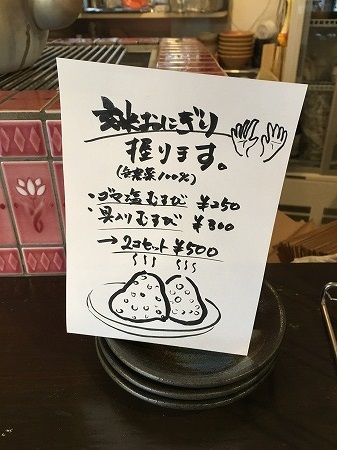 玄米おにぎり
握ります。
(無農薬100%)
・ゴマ塩むすび ¥250
・具入りむすび ¥300
→2コセット¥500